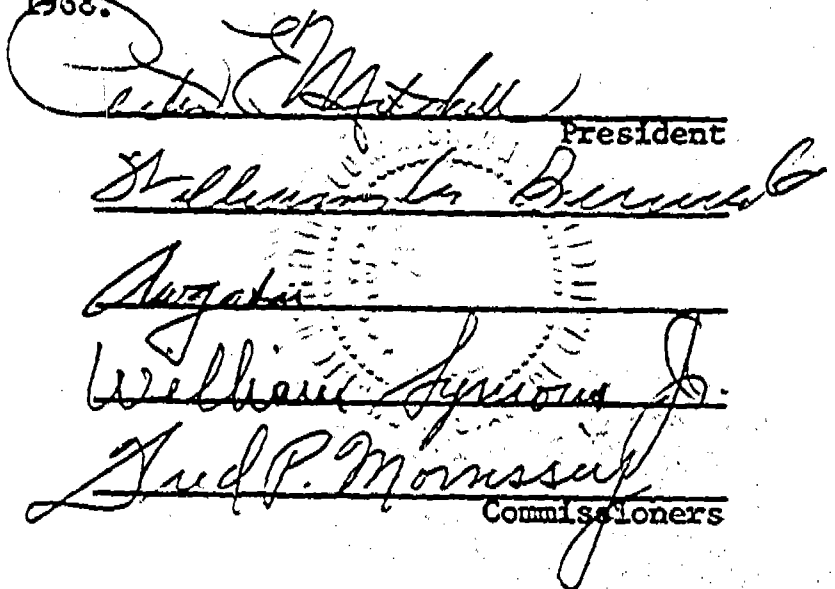 1968.
Peter E Mitchell
President
William M. Bennett
AWGatov
William Symons Jr.
Fred P. Morrissey
Commissioners